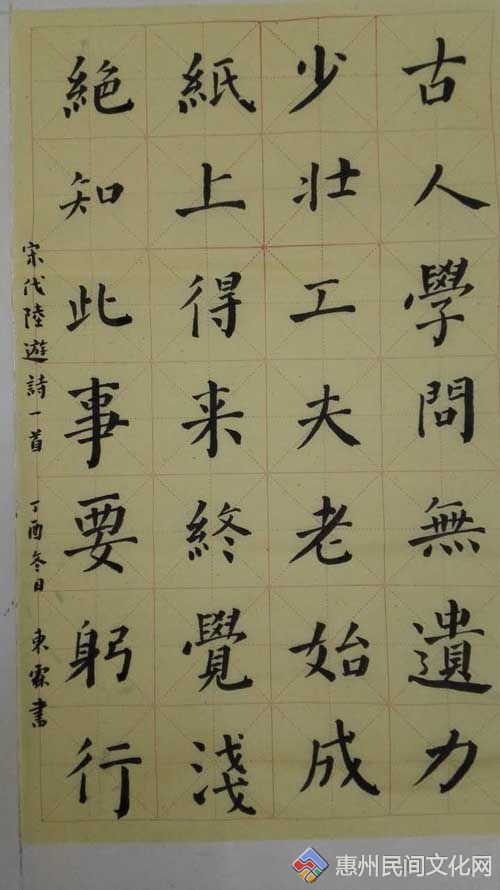 古人學問無遺力
少壯工夫老始成
紙上得来終覺淺
絕知此事要躬行
宋代陸遊詩一首 丁酉冬日 東霖書
惠州民间文化网